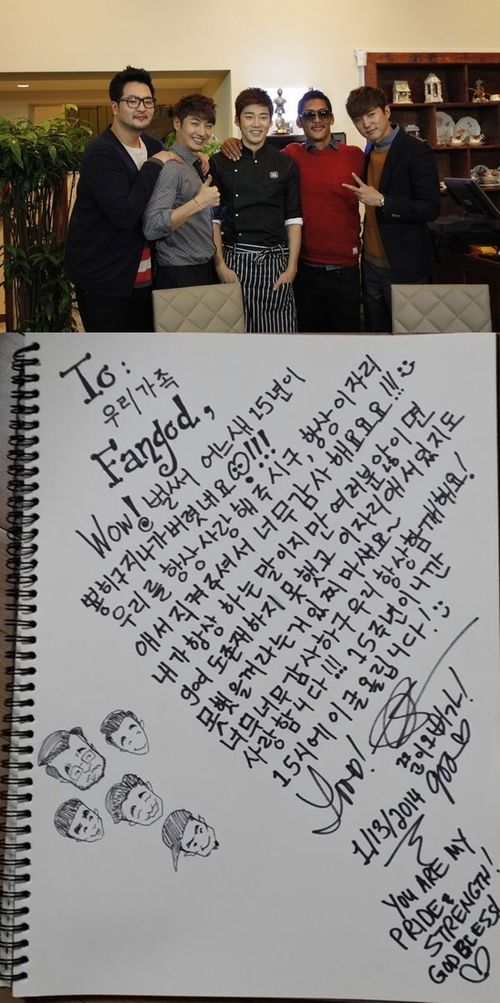 To:
우리가족
Fangod,
Wow! 벌써 어느새 15년이
휭하구지나가버렸내요 !!!!
우리를 항상 사랑해주시구, 항상 이자리
애서 지켜주셔서 너무감사해요요요!!!
내가 항상 하는 말이지만 여러분않이면
god도존재하지 못했고 이자리애서있지도
못했을꺼라는거 있찌마세요~
너므너무감사하구 우리 항상함깨해요!
사랑합니다!!! 15주년이니간
15시에 이글올립니다!
god
1/13/2014
YOU ARE MY
PRIDE &
STRENGTH!
GOD BLESS!